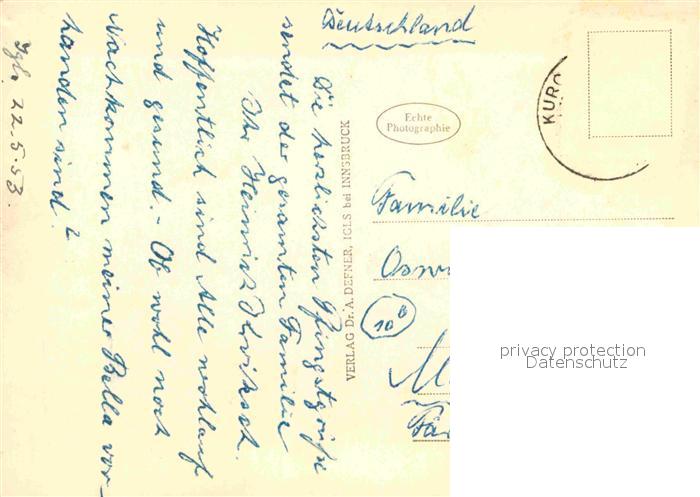 Igls 22.5.53.
Die herzlichsten Pfingstgrüße
sendet der gesamten Familie
Ihr Heinrich
Hoffentlich sind Alle wohlauf
und gesund. - Ob wohl noch
Nachkommen meiner Bella vor-
handen sind?
VERLAG Dr. A. DEFNER, IGLS bei INNSBRUCK
Deutschland
Echte
Photographie
KURO
Familie
Osw
10b
privacy protection
Datenschutz